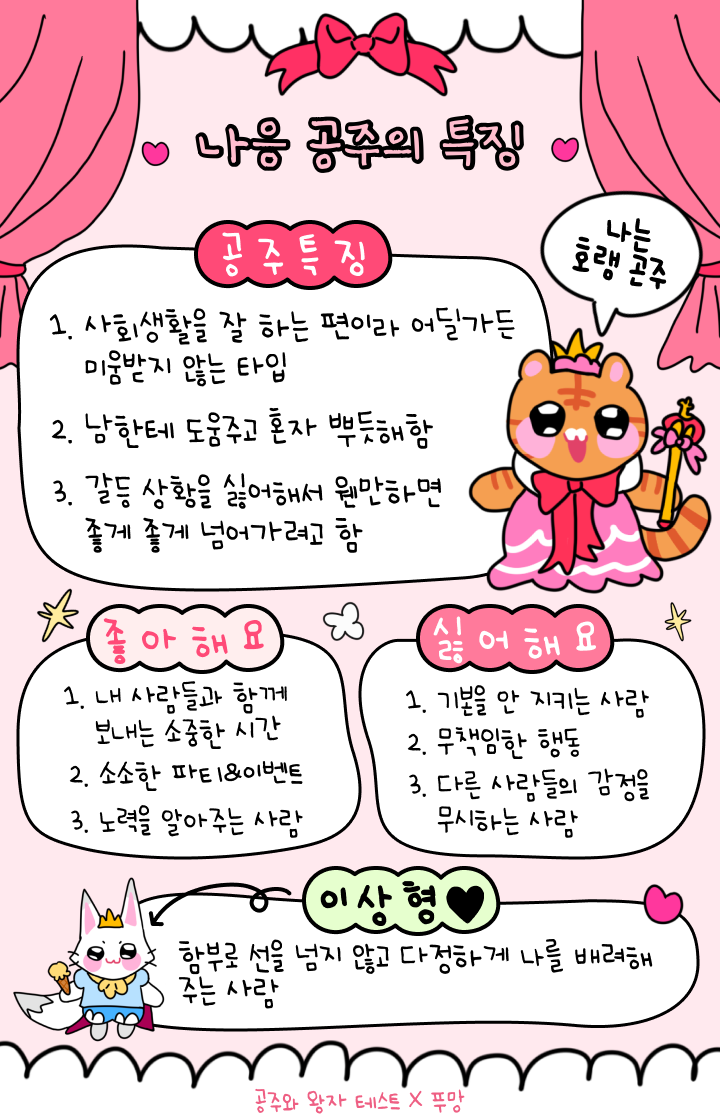 나응 공주의 특징
나는
호랭 곤주
공주특징
1. 사회생활을 잘 하는 편이라 어딜가든
미움받지 않는 타입
2. 남한테 도움주고 혼자 뿌듯해함
3. 갈등 상황을 싫어해서 웬만하면
좋게 좋게 넘어가려고 함
좋아해요
1. 내 사람들과 함께
보내는 소중한 시간
2. 소소한 파티&이벤트
3. 노력을 알아주는 사람
싫어해요
1. 기본을 안 지키는 사람
2. 무책임한 행동
3. 다른 사람들의 감정을
무시하는 사람
이상형♥
함부로 선을 넘지 않고 다정하게 나를 배려해
주는 사람
공주와 왕자 테스트 X 푸망